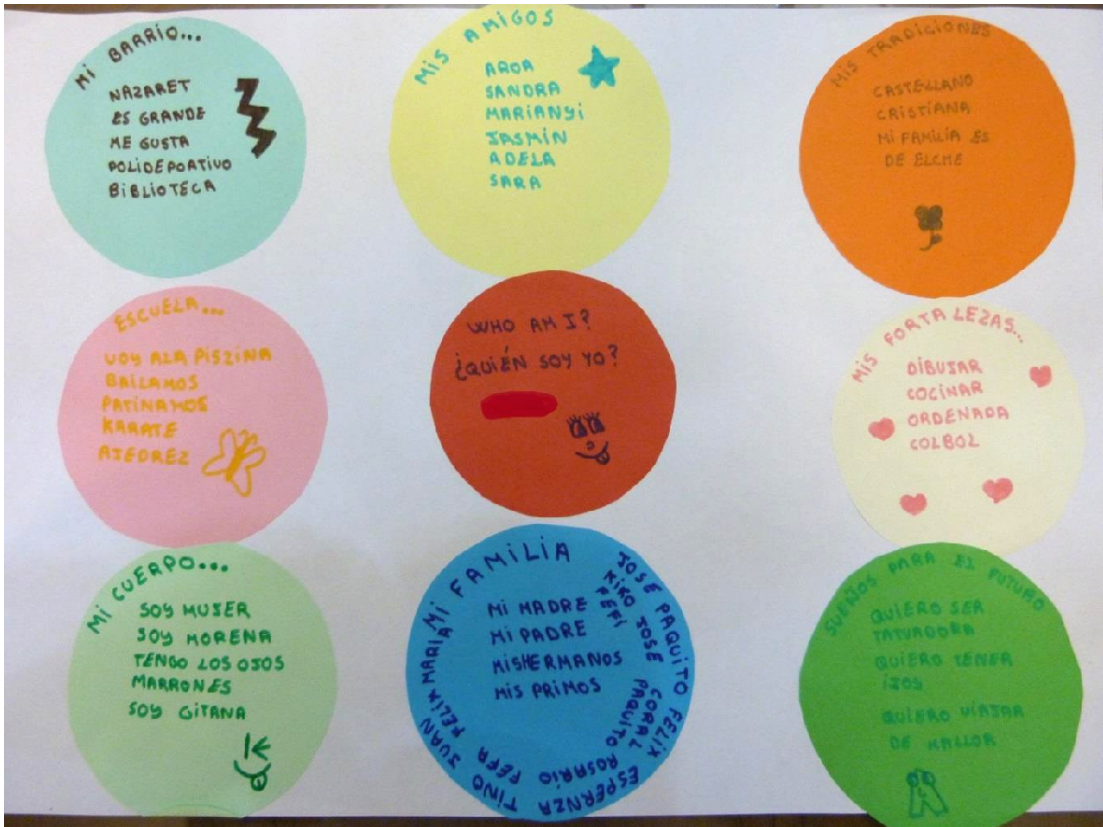 Mi BARRiO...
NAZARET
ES GRANDE
ME GUSTA
POLIDEPORTIVO
BiBLIOTECA
MIS AMIGOS
AROA
SANDRA
MARIANYi
JASMÍN
ADELA
SARA
MIS TRADICIONES
CASTELLANO
CRISTIANA
MI FAMILIA ES
DE ELCHE
ESCUELA...
VOY ALA PISZINA
BAILAMOS
PATINAMOS
KARATE
AJEDREZ
WHO AM I?
¿QUIÉN SOY YO?
MIS FORTALEZAS...
DIBUJAR
COCINAR
ORDENADA
COLBOL
Mi CUERPO...
SOY MUJER
SOY MORENA
TENGO LOS OJOS
MARRONES
SOY GITANA
MI FAMILIA
MI MADRE
MI PADRE
MISHERMANOS
MIS PRIMOS
JOSE PAQUITO FELIX ESPERNZA TINO JUAN FELIX MARIA
KIKO JOSE CORAL PAQUITO ROSARIO PEPA
PEPI
SUEÑOS PARA EL FUTURO
QUIERO SER
TATUADORA
QUIERO TENER
IJOS
QUIERO VIAJAR
DE MALLOR